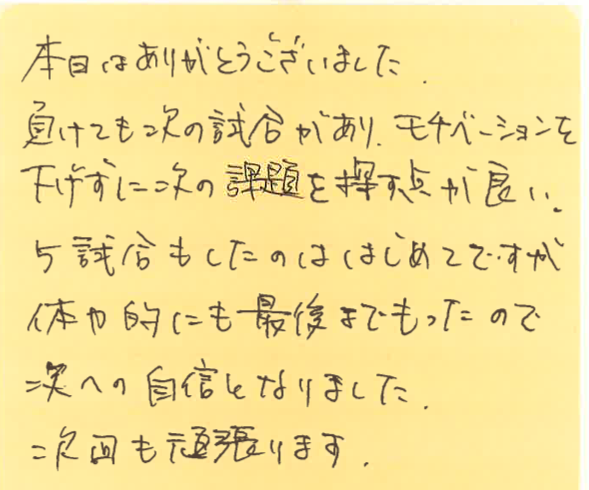 本日はありがとうございました.
負けても次の試合があり、モチベーションを
下げずに次の課題を探す点が良い。
5試合もしたのははじめてですが
体力的にも最後までもったので
次への自信となりました.
次回も頑張ります.